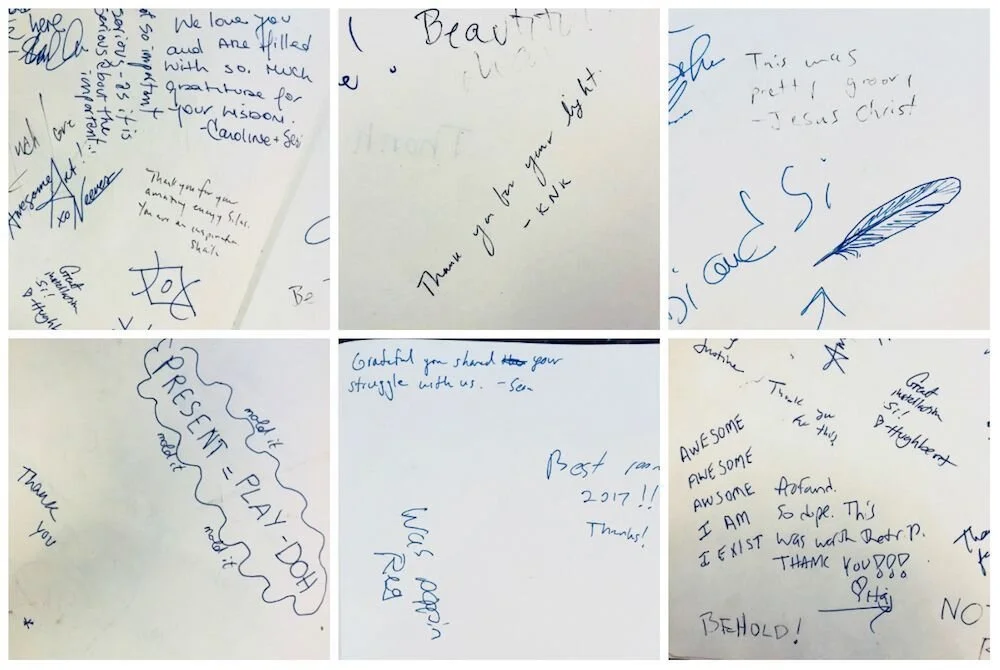 here
We love you
and are filled
with so much
gratitude for
your wisdom.
-Caroline +
not so important
serious - as it is
serious about the
important...
Awesome Art!
to
Thank you for your
amazing energy Silas.
You are an inspiration
Great
Si!
Be
Beautiful!
Thank you for your light.
- KNK
This was
pretty groovy
-Jesus Christ
Si
PRESENT = PLAY-DOH
mold it
mold it
mold it
Thank
you
Grateful you shared your
struggle with us. -Sean
Best
2017!!
Thanks!
Was poppin
Justine
Thank you
for this!
Great
Si!
AWESOME
AWESOME
AWSOME
I AM
I EXIST
So dope. This
was worth the trip.
THANK YOU!!!
BEHOLD!
NO